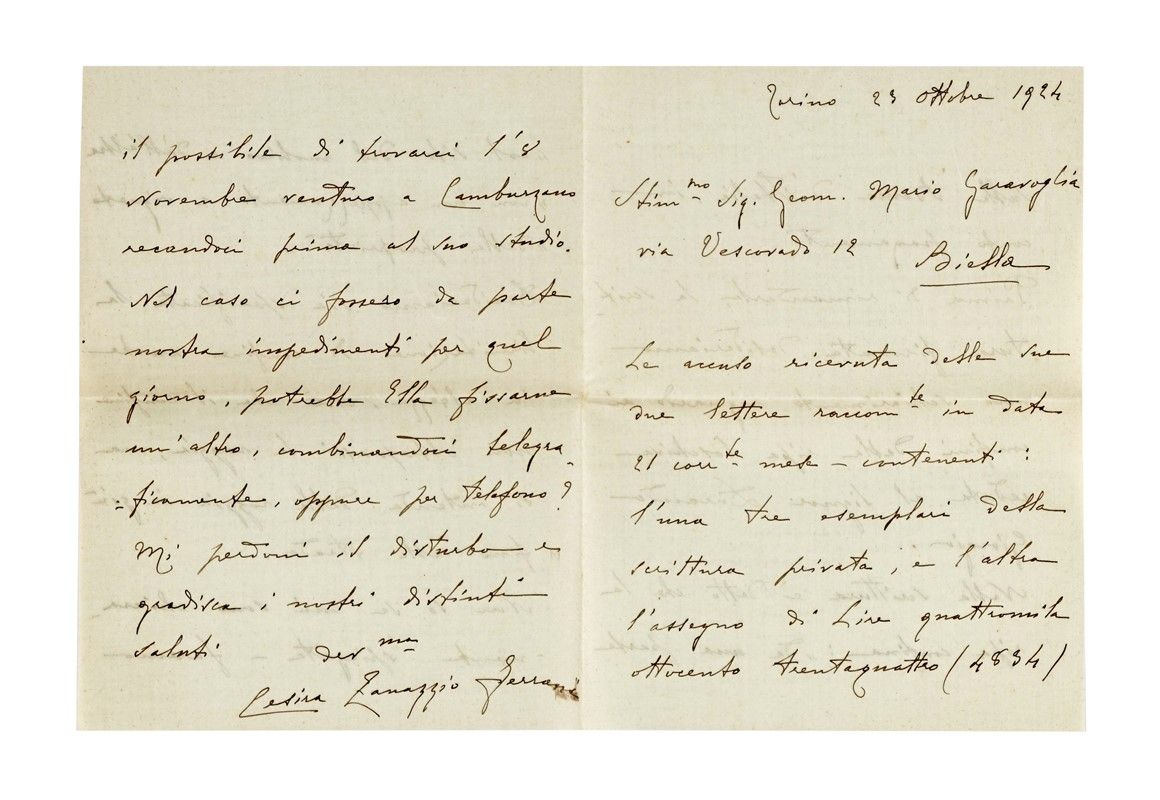 Torino 23 Ottobre 1924
Stim.mo Sig. Geom. Mario Garavoglia
via Vescovado 12 Biella
Le accuso ricevuta delle sue
due lettere raccom.te in data
21 corr.te mese – contenenti :
l'una tre esemplari della
scrittura privata, e l'altra
l'assegno di Lire quattromila
ottocento trentaquattro (4834)
il possibile di trovarci l'8
Novembre venturo a Camburzano
recandoci prima al suo studio.
Nel caso ci fossero da parte
nostra impedimenti per quel
giorno, potrebbe Ella fissarne
un'altro, combinandoci telegra-
-ficamente, oppure per telefono?
Mi perdoni il disturbo e
gradisca i nostri distinti
saluti dev.ma
Cesira Zanazzio Ferrani